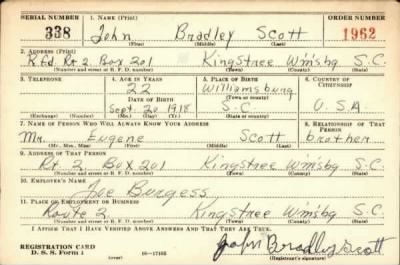 SERIAL NUMBER 1. NAME (Print) ORDER NUMBER
338 John Bradley Scott 1962
(First) (Middle) (Last)
2. ADDRESS (Print)
R.F.d. Rt 2 Box 201 Kingstree W'msbg S.C.
(Number and street or R. F. D. number) (Town) (County) (State)
3. TELEPHONE 4. AGE IN YEARS 5. PLACE OF BIRTH 6. COUNTRY OF CITIZENSHIP
22 Williamsburg
DATE OF BIRTH (Town or county)
Sept. 20 1918 S.C. U.S.A
(Exchange) (Number) (Mo.) (Day) (Yr.) (State or country)
7. NAME OF PERSON WHO WILL ALWAYS KNOW YOUR ADDRESS 8. RELATIONSHIP OF THAT PERSON
Mr. Eugene Scott brother
(Mr., Mrs., Miss) (First) (Middle) (Last)
9. ADDRESS OF THAT PERSON
Rt 2 Box 201 Kingstree W'msbg S.C.
(Number and street or R. F. D. number) (Town) (County) (State)
10. EMPLOYER'S NAME
Joe Burgess
11. PLACE OF EMPLOYMENT OR BUSINESS
Route 2 Kingstree W'msbg S.C.
(Number and street or R. F. D. number) (Town) (County) (State)
I AFFIRM THAT I HAVE VERIFIED ABOVE ANSWERS AND THAT THEY ARE TRUE.
REGISTRATION CARD
D. S. S. Form 1 (over) 16—17105 John Bradley Scott